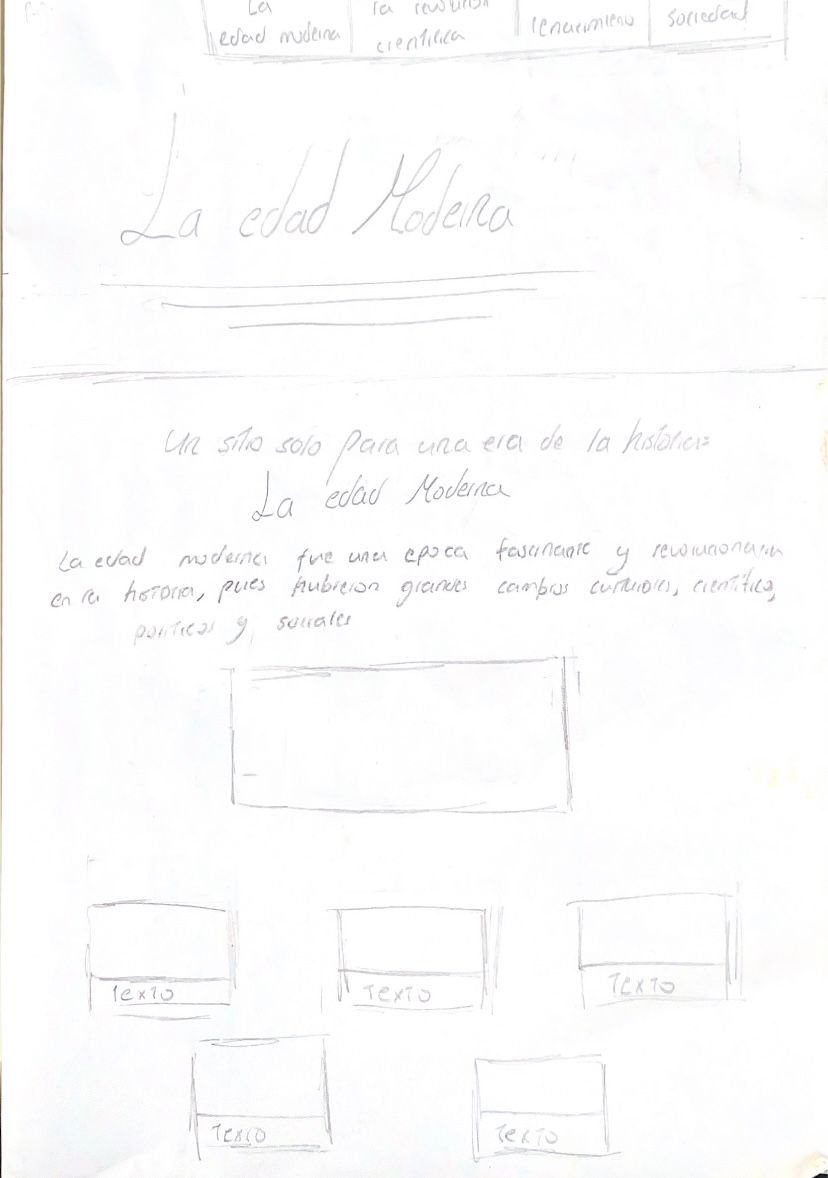 La
edad moderna
la revolución
científica
renacimiento
sociedad
La edad Moderna
Un sitio solo para una era de la historia:
La edad Moderna
La edad moderna fue una epoca fascinante y revolucionaria
en la historia, pues hubieron grandes cambios culturales, científico,
políticos y sociales
Texto
Texto
Texto
Texto
Texto